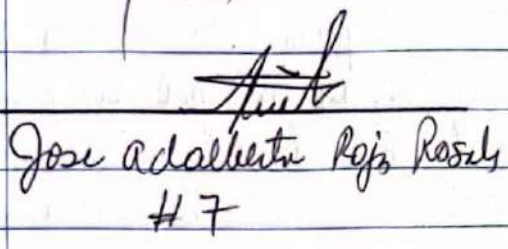 Jose Adalberto Rojas Rosales
#7